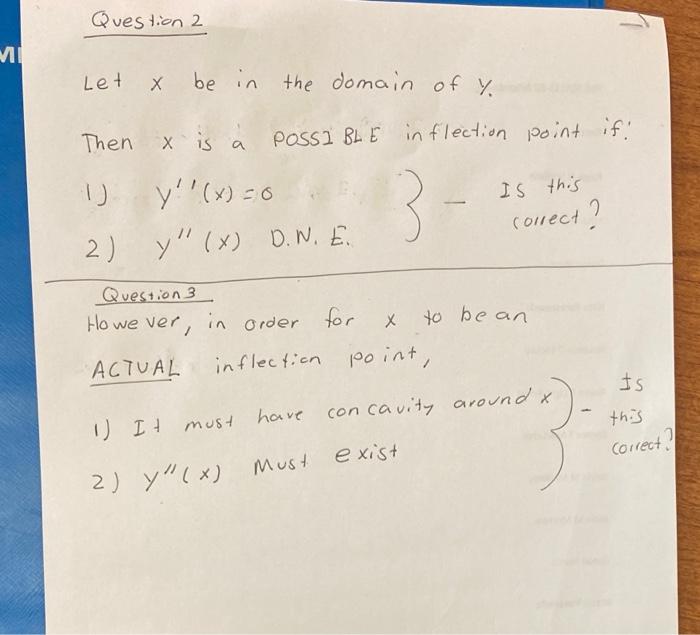 MI
Question 2
Let x be in the domain of y.
Then x is a POSSIBLE inflection point if:
1) y''(x) = 0
2) y''(x) D.N.E.
} - Is this
correct?
Question 3
However, in order for x to be an
ACTUAL inflection point,
1) It must have concavity around x
2) y''(x) Must exist
} - Is
this
correct?